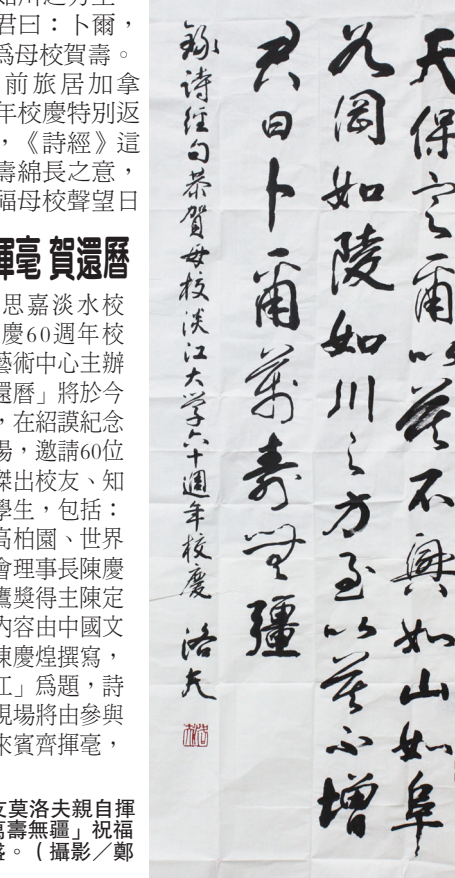 君曰：卜爾，
爲母校賀壽。
前旅居加拿
年校慶特別返
，《詩經》這
壽綿長之意，
福母校聲望日
揮毫 賀還曆
思嘉淡水校
慶60週年校
藝術中心主辦
還曆」將於今
，在紹謨紀念
場，邀請60位
傑出校友、知
學生，包括：
高柏園、世界
會理事長陳慶
鷹獎得主陳定
內容由中國文
陳慶煌撰寫，
江」爲題，詩
現場將由參與
來賓齊揮毫，
友莫洛夫親自揮
萬壽無疆」祝福
盛。（攝影／鄭
天保定爾以莫不興如山如阜
如岡如陵如川之方至以莫不增
君曰卜爾萬壽無疆
錄詩經句恭賀母校淡江大学六十週年校慶 洛夫